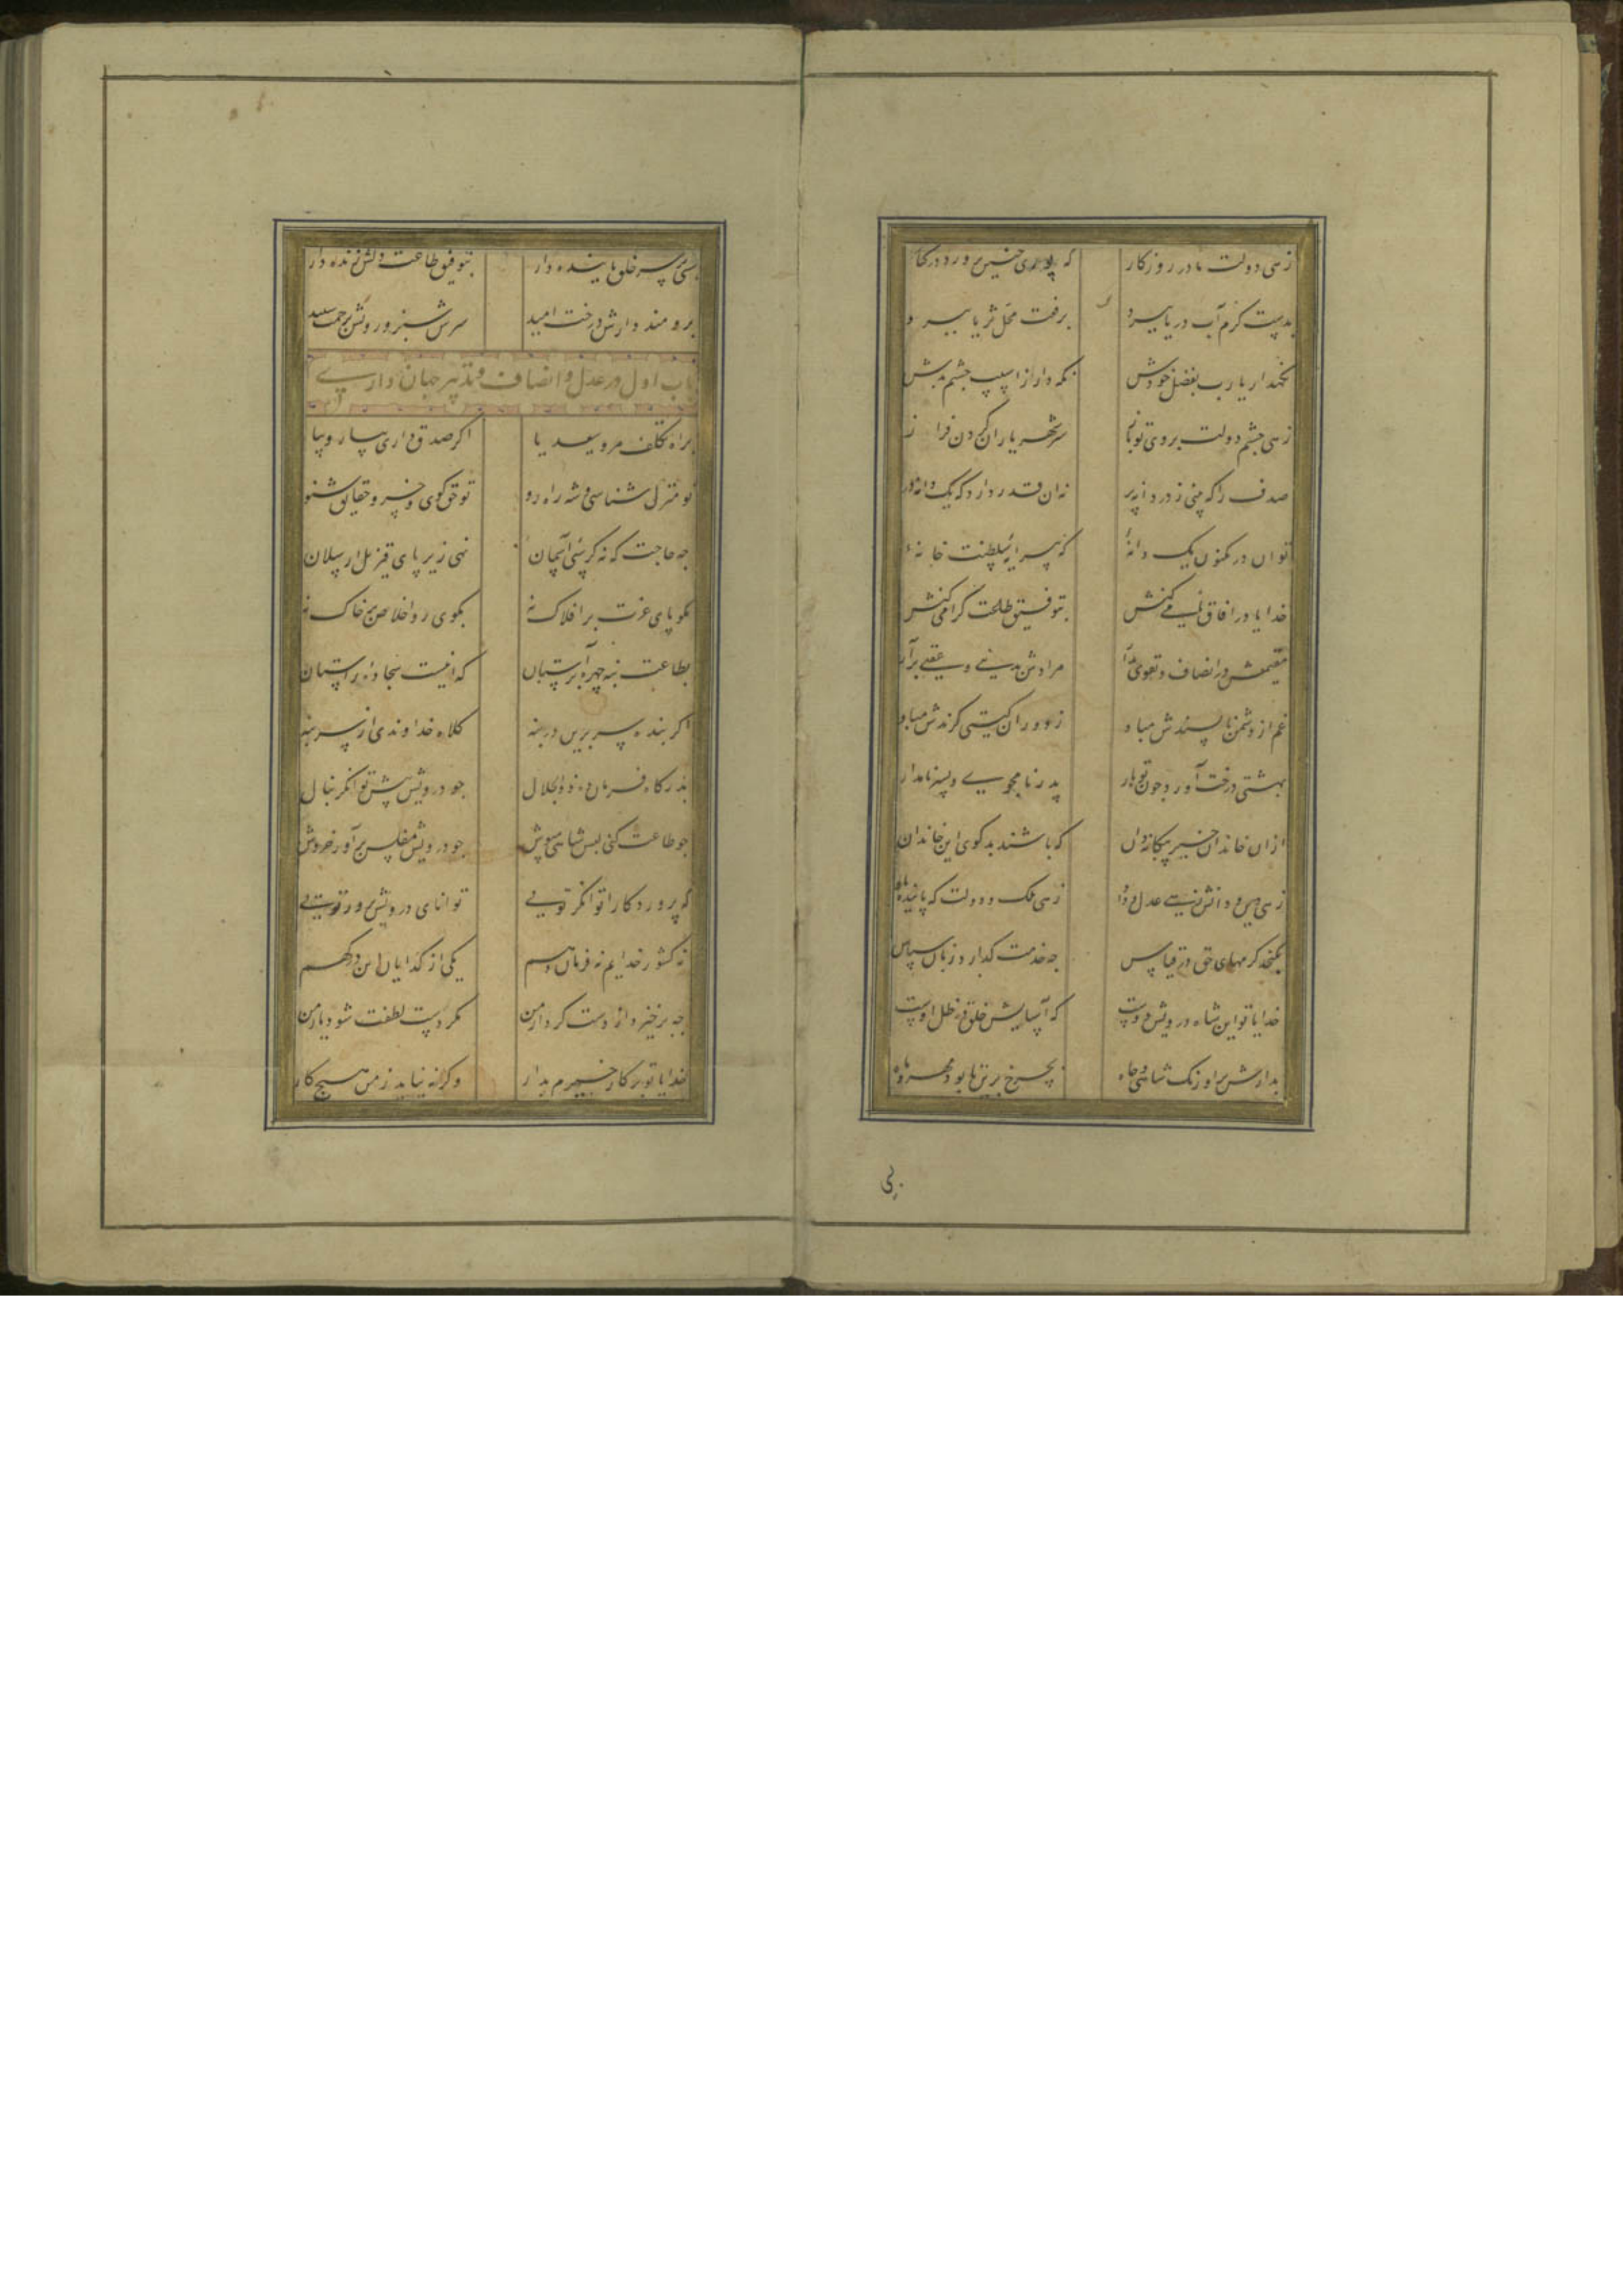 زهی دولت مادر روزکار که پوری چنین پرورد در کنار
بدست کرم آب دریا ببرد برفعت محل ثریا ببرد
نکهدار یارب بفضل خودش نکه دار از اسیب چشم بدش
زهی چشم دولت بروی تو باز سر شهریاران کردن فراز
صدف را که بینی ز دردانه پر نه ان قدر دارد که یک دانه در
تو ان در مکنون یک دانهٔ که پیرایه سلطنت خانهٔ
خدایا در افاق نامی کنش بتوفیق طاعت کرامی کنش
مقیمش در انصاف و تقوی بدار مرادش بدنیی و عقبی برآر
غم از دشمن ناپسندش مباد ز دوران کیتی کزندش مباد
بهشتی درخت آورد چون تو بار پدر نامجوی و پسر نامدار
ازان خاندان خیر بیکانه دان که باشند بدکوی این خاندان
زهی دین و دانش زهی عدل و داد زهی ملک و دولت که پاینده باد
نکنجد کرمهای حق در قیاس چه خدمت کذارد زبان سپاس
خدایا تو این شاه درویش دوست که آسایش خلق در ظل اوست
بدارش بر اورنک شاهی و جاه بچرخ برین تا بود مهر و ماه
بسی
بسی بر سر خلق پاینده دار بتوفیق طاعت دلش زنده دار
برومند دارش درخت امید سرش سبز و رویش برحمت سپید
باب اول در عدل و انصاف و تدبیر جهان داری
براه تکلف مرو سعدیا اکر صدق داری بیار و بیا
تو منزل شناسی و شه راه رو تو حق کوی و خسرو حقایق شنو
چه حاجت که نه کرسی آسمان نهی زیر پای قزل ارسلان
مکو پای عزت بر افلاک نه بکوی روی اخلاص بر خاک نه
بطاعت بنه چهره بر آستان که اینست سجاده راستان
اکر بنده سر برین در بنه کلاه خداوندی از سر بنه
بدرکاه فرمان ده ذو الجلال چو درویش پیش توانکر بنال
چو طاعت کنی لبس شاهی مپوش چو درویش مفلس برآور خروش
که پروردکارا توانکر تویی توانای درویش پرور تویی
نه کشور خدایم نه فرمان دهم یکی از کدایان این درکهم
چه برخیزد از دست کردار من مکر دست لطفت شود یار من
خدایا تو بر کار خیرم بدار وکرنه نیاید ز من هیچ کار